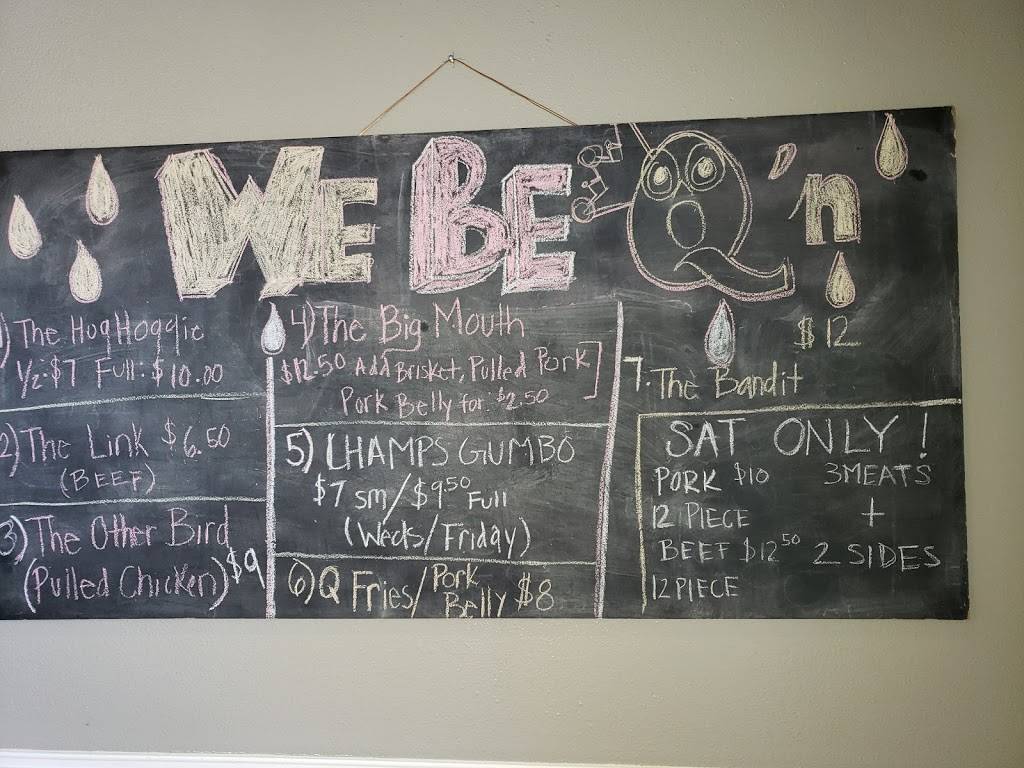 WE BE Q'n
1) The HogHoggie
1/2: $7 Full: $10.00
2) The Link $6.50
(BEEF)
3) The Other Bird
(Pulled Chicken) $9
4) The Big Mouth
$12.50 Add Brisket, Pulled Pork
Pork Belly for $2.50
5) LHAMPS GUMBO
$7 sm/$9.50 Full
(Weds/Friday)
6) Q Fries/Pork Belly $8
$12
7. The Bandit
SAT ONLY!
PORK $10
12 PIECE
BEEF $12.50
12 PIECE
3 MEATS
+
2 SIDES